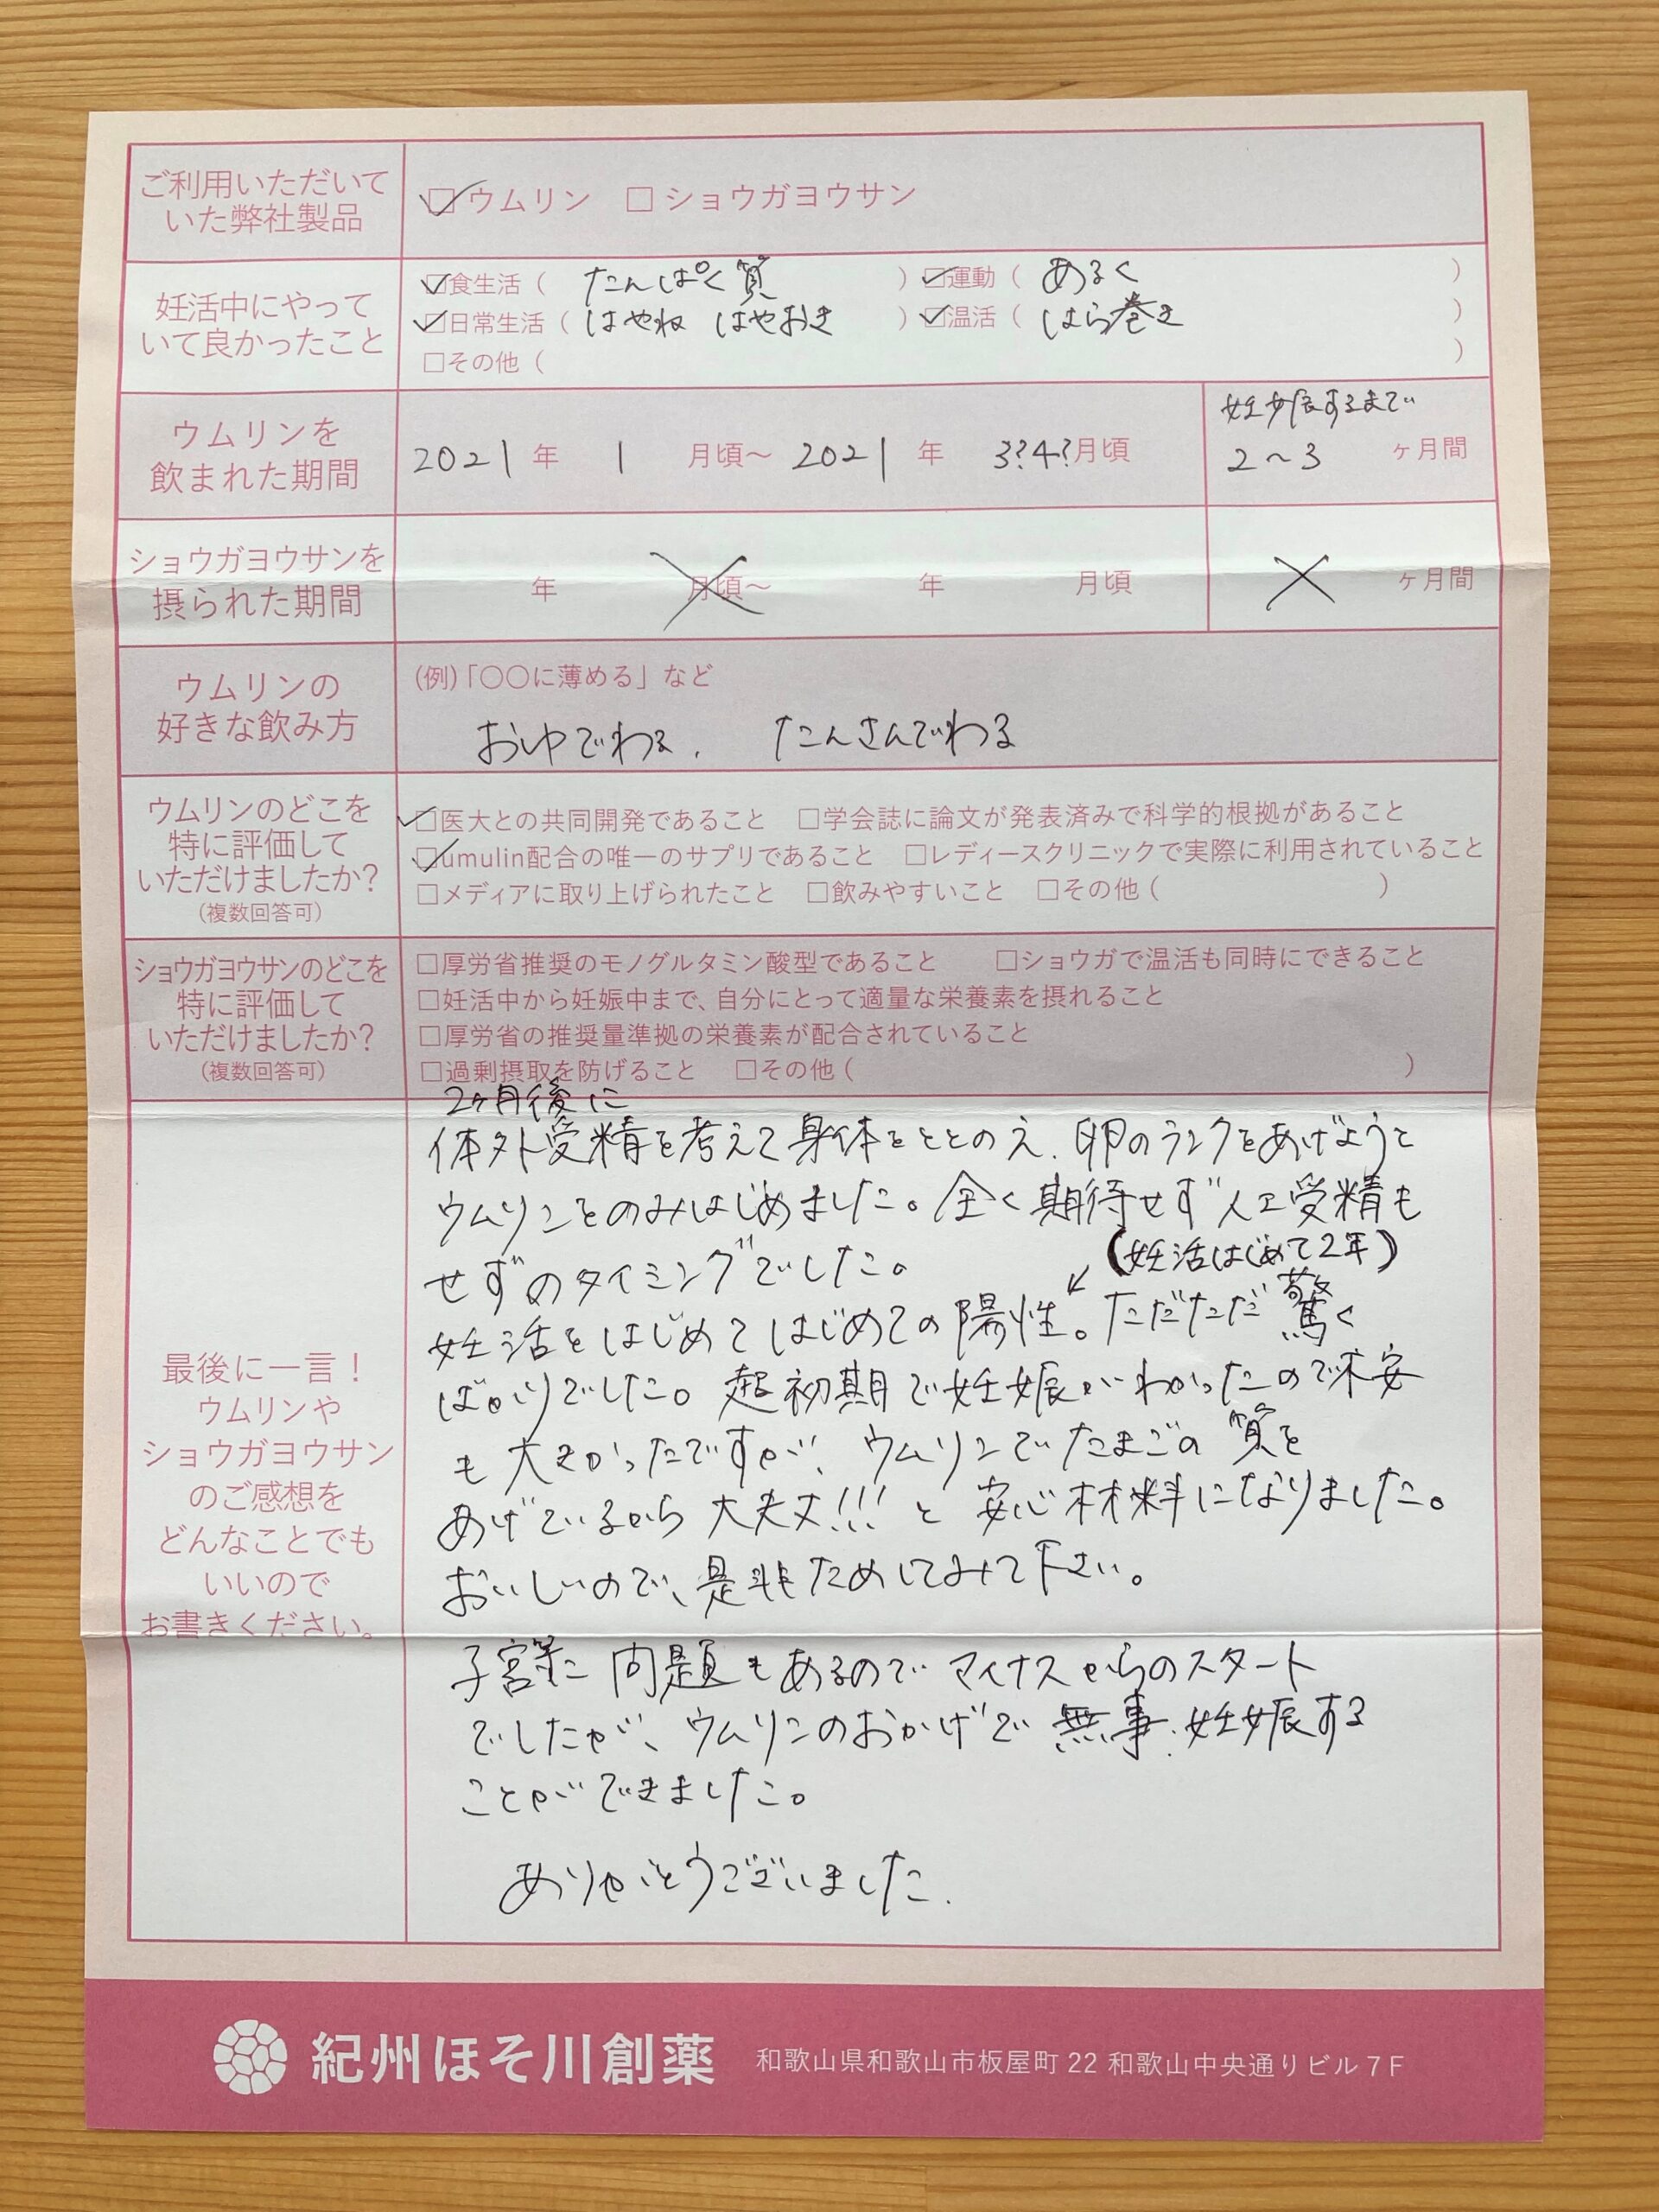 ご利用いただいて
いた弊社製品
☑ウムリン □ショウガヨウサン
妊活中にやって
いて良かったこと
☑食生活（ たんぱく質 ） ☑運動（ あるく ）
☑日常生活（ はやね はやおき ） ☑温活（ はら巻き ）
□その他（ ）
ウムリンを
飲まれた期間
2021年 1月頃～2021年 3?4?月頃
妊娠するまで
2～3 ヶ月間
ショウガヨウサンを
摂られた期間
年 月頃～ 年 月頃 ヶ月間
ウムリンの
好きな飲み方
(例)「〇〇に薄める」など
おゆでわる. たんさんでわる
ウムリンのどこを
特に評価して
いただけましたか?
(複数回答可)
☑医大との共同開発であること □学会誌に論文が発表済みで科学的根拠があること
☑umulin配合の唯一のサプリであること □レディースクリニックで実際に利用されていること
□メディアに取り上げられたこと □飲みやすいこと □その他（ ）
ショウガヨウサンのどこを
特に評価して
いただけましたか?
(複数回答可)
□厚労省推奨のモノグルタミン酸型であること □ショウガで温活も同時にできること
□妊活中から妊娠中まで、自分にとって適量な栄養素を摂れること
□厚労省の推奨量準拠の栄養素が配合されていること
□過剰摂取を防げること □その他（ ）
最後に一言！
ウムリンや
ショウガヨウサン
のご感想を
どんなことでも
いいので
お書きください。
2ヶ月後に
体外受精を考えて身体をととのえ、卵のランクをあげようと
ウムリンをのみはじめました。全く期待せず人工受精も
せずのタイミングでした。
(妊活はじめて2年)
妊活をはじめてはじめての陽性。ただただ驚く
ばかりでした。超初期で妊娠がわかったので不安
も大きかったですが、ウムリンでたまごの質を
あげているから大丈夫!!!と安心材料になりました。
おいしいので、是非ためしてみて下さい。
子宮等に問題もあるのでマイナスからのスタート
でしたが、ウムリンのおかげで無事、妊娠する
ことができました。
ありがとうございました.
紀州ほそ川創薬 和歌山県和歌山市板屋町 22 和歌山中央通りビル 7 F